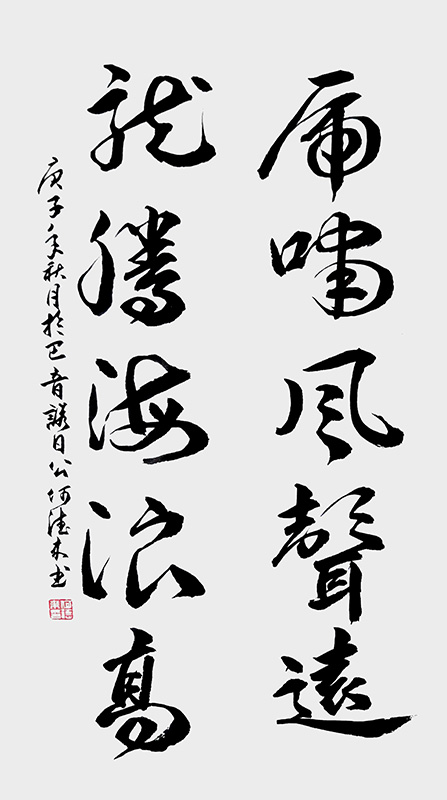 虎嘯风聲遠
龍騰海浪高
庚子年秋月於巴音諾日公何德才书